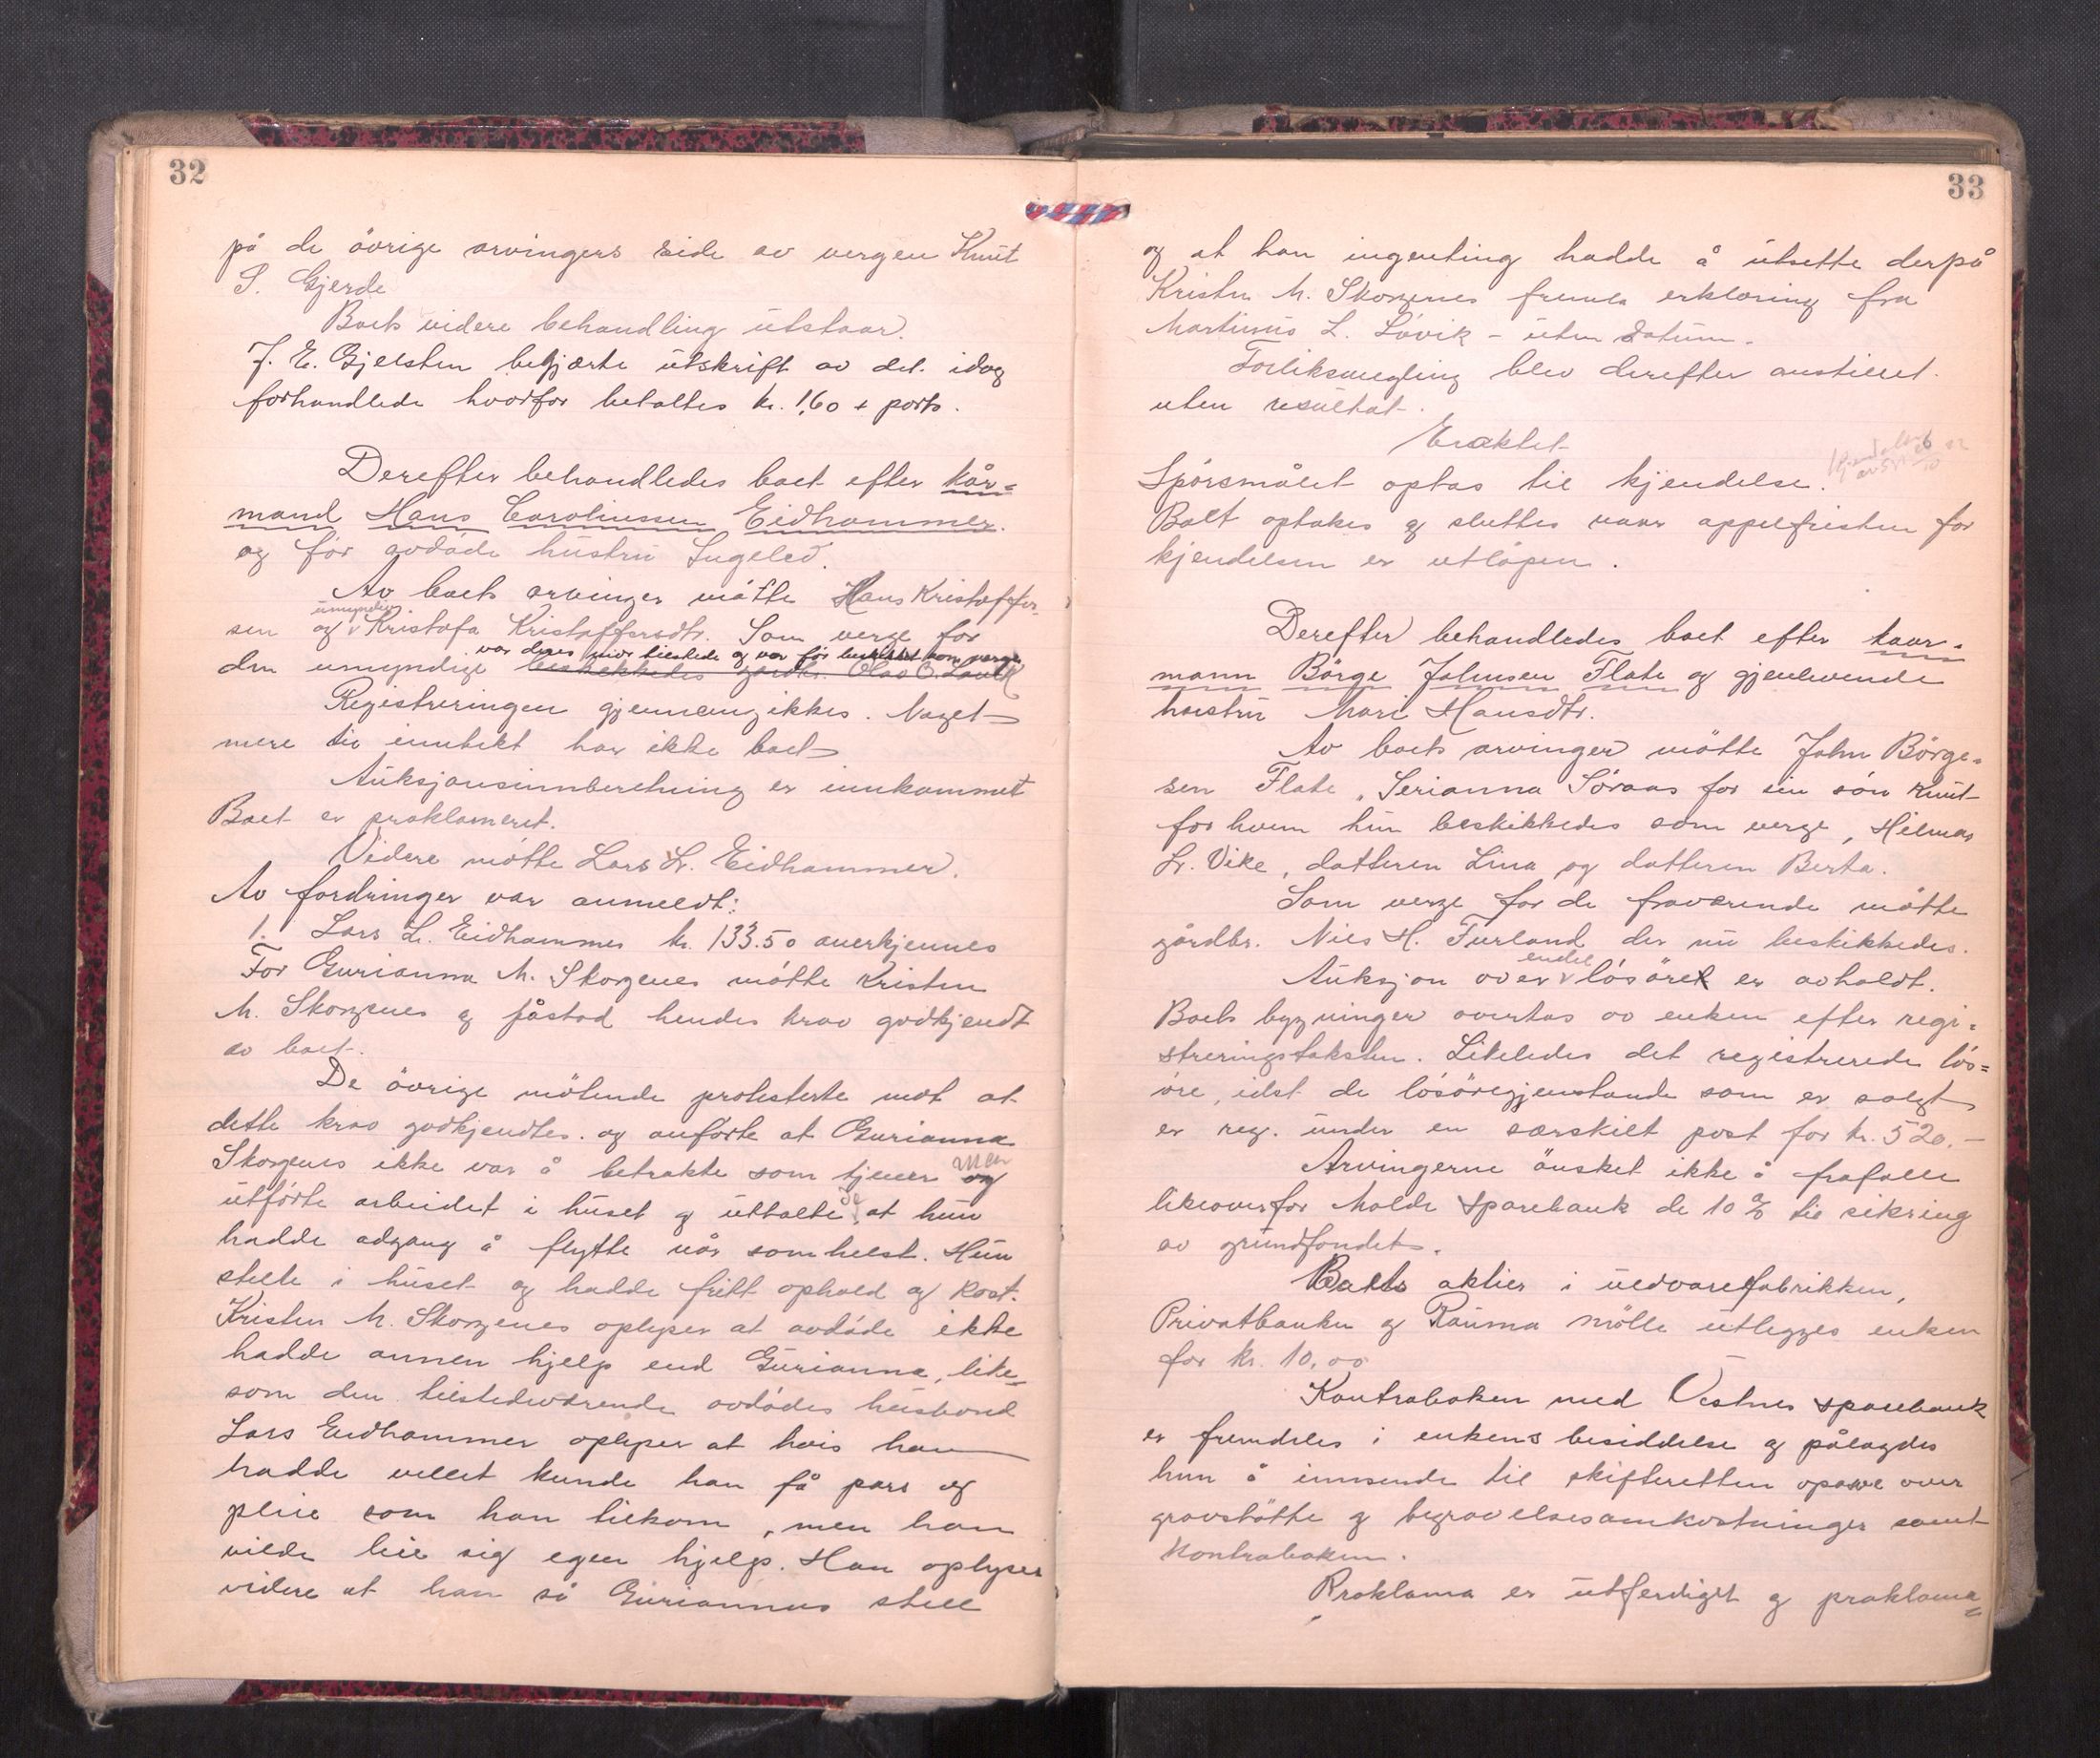 32
på de övrige arvingers side av vergen Knut
S. Gjerde
Boets videre behandling utstaar.
J. E. Gjelsten begjærte utskrift av det idag
forhandlede hvorfor betaltes kr. 1,60 + porto.
Derefter behandledes boet efter kår=
mand Hans Carolinssen Eidhammer.
og før avdøde hustru Ingeled.
Av boets arvinger møtte Hans Kristoffer-
umyndig
sen og v Kristofa Kristoffersdtr. Som verge for
var deres mor tilstede og var før beskikket som verge
den umyndige beskikkedes gardbr. Olav O. Lauvik
Registreringen gjennemgikkes. Noget
mere til inntekt har ikke boet
Auksjonsinnberetning er innkommet
Boet er proklameret.
Videre møtte Lars L. Eidhammer.
Av fordringer var anmeldt:
1. Lars L. Eidhammer kr. 133.50 anerkjennes
For Gurianna M. Skorgenes møtte Kristen
M. Skorgenes og påstod hendes krav godkjendt
av boet.
De övrige mötende protesterte mot at
dette krav godkjendtes. og anførte at Gurianna
men
Skorgenes ikke var å betrakte som tjener og
de
utførte arbeidet i huset og uttalte, at hun
hadde adgang å flytte når som helst. Hun
stelte i huset og hadde fritt ophold og kost.
Kristen M. Skorgenes oplyser at avdøde ikke
hadde annen hjelp end Gurianna, like=
som den tilstedeværende avdødes husbond
Lars Eidhammer oplyser at hvis han
hadde villet kunde han få pass og
pleie som han tilkom, men han
vilde leie sig egen hjelp. Han oplyser
videre at han så Guriannas stell
33
og at han ingenting hadde å utsette derpå
Kristen M. Skorgenes fremla erklæring fra
Martinus L. Løvik - uten datum.
Forliksmegling blev derefter anstillet
uten resultat.
Eraktet
Spörsmålet optas til kjendelse.
Boet optakes og sluttes naar appelfristen for
kjendelsen er utløpen.
Derefter behandledes boet efter kaar=
mann Börge Johnsen Flate og gjenlevende
hustru Mari Hansdtr.
Av boets arvinger møtte John Börge=
sen Flate, Serianna Söraas for sin sön Knut
for hvem hun beskikkedes som verge, Hilmar
L. Vike, datteren Lina og datteren Berta.
Som verge for de fraværende møtte
gårdbr. Nils H. Furland der nu beskikkedes.
endel
Auksjon over v løsøret er avholdt.
Boets bygninger overtas av enken efter regi=
streringstaksten. Likeledes det registrerede løs=
øre, idet de løsøregjenstande som er solgt
er reg. under en særskilt post for kr. 520.-
Arvingerne önsket ikke å frafalle
likeoverfor Molde Sparebank de 10 % til sikring
av grundfondet.
Boets aktier i uldvarefabrikken,
Privatbanken og Rauma mölle utlegges enken
for kr. 10,00
Kontraboken med Vestnes sparebank
er fremdeles i enkens besiddelse og pålagdes
hun å innsende til skifteretten opgave over
gravstötte og begravelsesomkostninger samt
kontraboken.
Proklama er utferdiget og proklama=